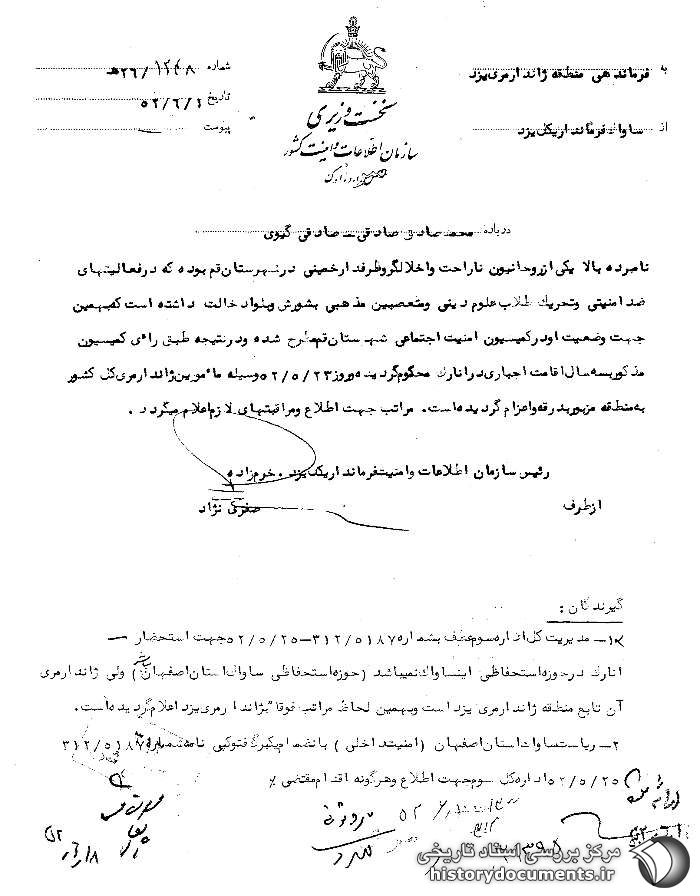 به فرماندهی منطقه ژاندارمری یزد
از ساواک فرمانداریکل یزد
نخست وزیری
سازمان اطلاعات و امنیت کشور
شماره ۱۲۴۸/۲۶ﻫ
تاریخ ۵۲/۶/۱
پیوست
درباره محمد صادق صادقی - صادقی گیوی
نامبرده بالا یکی از روحانیون ناراحت و اخلالگر و طرفدار خمینی در شهرستان قم بوده که در فعالیتهای
ضد امنیتی و تحریک طلاب علوم دینی و متعصبین مذهبی بشورش و بلوا دخالت داشته است که بهمین
جهت وضعیت او در کمیسیون امنیت اجتماعی شهرستان قم مطرح شده و در نتیجه طبق رائی کمیسیون
مذکور بسه سال اقامت اجباری در انارک محکوم گردیده و روز ۵۲/۵/۲۳ وسیله مامورین ژاندارمری کل کشور
به منطقه مزبور بدرقه و اعزام گردیده است. مراتب جهت اطلاع و مراقبتهای لازم اعلام میگردد.
رئیس سازمان اطلاعات و امنیت فرمانداریکل یزد. خرم زاده
از طرف صفری نژاد
گیرندگان:
۱- مدیریت کل اداره سوم عطف بشماره ۳۱۲/۵۱۸۷-۵۲/۵/۲۵ جهت استحضار -
انارک در حوزه استحفاظی این ساواک نمیباشد (حوزه استحفاظی ساواک استان اصفهان) ولی ژاندارمری
آن تابع منطقه ژاندارمری یزد است و بهمین لحاظ مراتب فوقا بژاندارمری یزد اعلام گردیده است.
۲- ریاست ساواک استان اصفهان (امنیت داخلی) بانضمام یکبرگ فتوکپی نامه شماره ۳۱۲/۵۱۸۷
۵۲/۵/۲۵ اداره کل سوم جهت اطلاع و هرگونه اقدام مقتضی ٪
مرکز بررسی اسناد تاریخی
historydocuments.ir